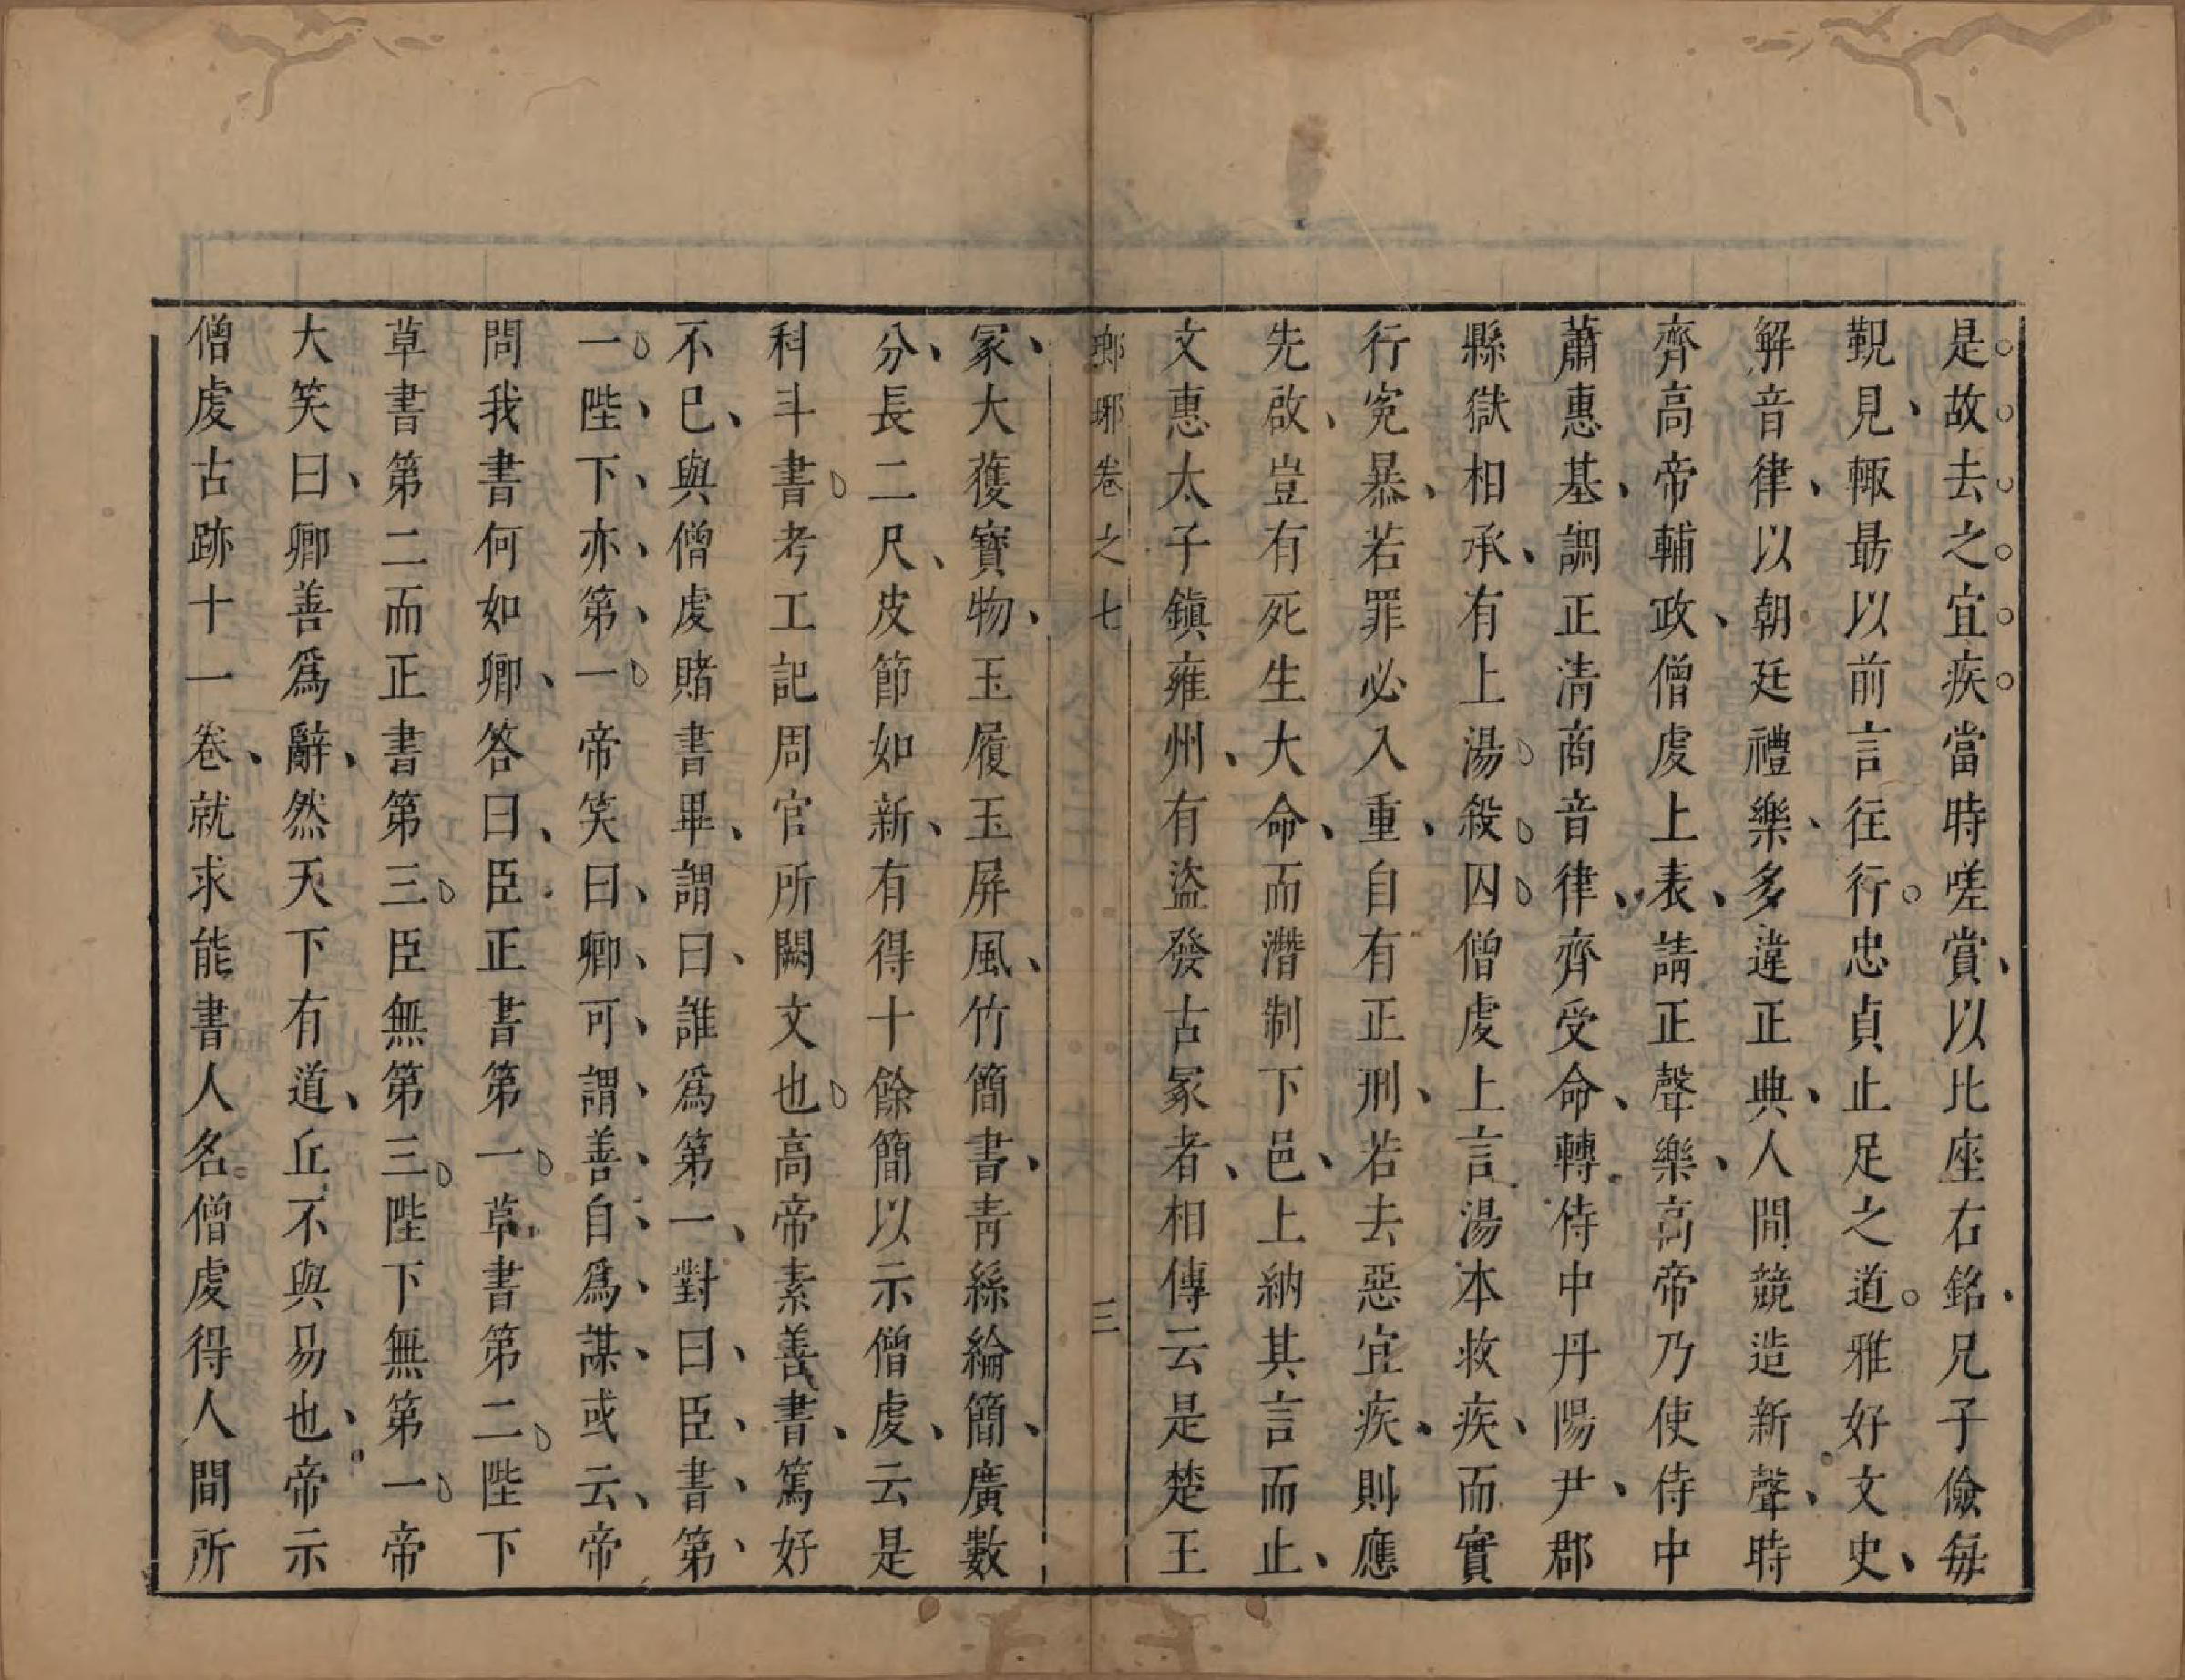 是故去之宜疾當時嗟賞以比座右銘兄子儉每
覲見輙最以前言往行忠貞止足之道雅好文史
解音律以朝廷禮樂多違正典人間競造新聲時
齊高帝輔政僧虔上表請正聲樂高帝乃使侍中
蕭惠基調正清商音律齊受命轉侍中丹陽尹郡
縣獄相承有上湯殺囚僧虔上言湯本救疾而實
行寃暴若罪必入重自有正刑若去惡宜疾則應
先啟豈有死生大命而潛制下邑上納其言而止
文惠太子鎮雍州有盜發古冢者相傳云是楚王
瑯琊卷之七 三
冢大獲寶物玉履玉屏風竹簡書青絲綸簡廣數
分長二尺皮節如新有得十餘簡以示僧虔云是
科斗書考工記周官所闕文也高帝素善書篤好
不已與僧虔賭書畢謂曰誰為第一對曰臣書第
一陛下亦第一帝笑曰卿可謂善自為謀或云帝
問我書何如卿答曰臣正書第一草書第二陛下
草書第二而正書第三臣無第三陛下無第一帝
大笑曰卿善爲辭然天下有道丘不與易也帝示
僧虔古跡十一卷就求能書人名僧虔得人間所